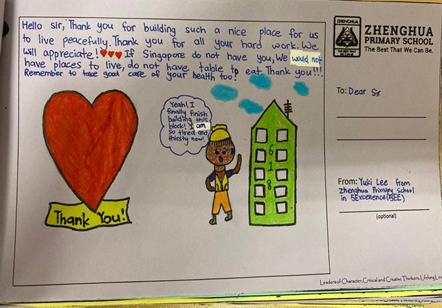 Hello sir, Thank you for building such a nice place for us
to live peacefully. Thank you for all your hard work. We
will appreciate! ♥♥♥ If Singapore do not have you, We would not
have places to live, do not have table to eat. Thank you!!!
Remember to take good care of your health too!
Yeah! I
finally finish
building this
block! I am
so tired and
thirsty now!
618
Thank You!
ZHENGHUA
ZHENGHUA
PRIMARY SCHOOL
The Best That We Can Be.
To: Dear Sir
From: Yuki Lee from
Zhenghua Primary School
in 5Excellence(5EE)
(optional)
Leaders of Character, Critical and Creative Thinkers, Lifelong